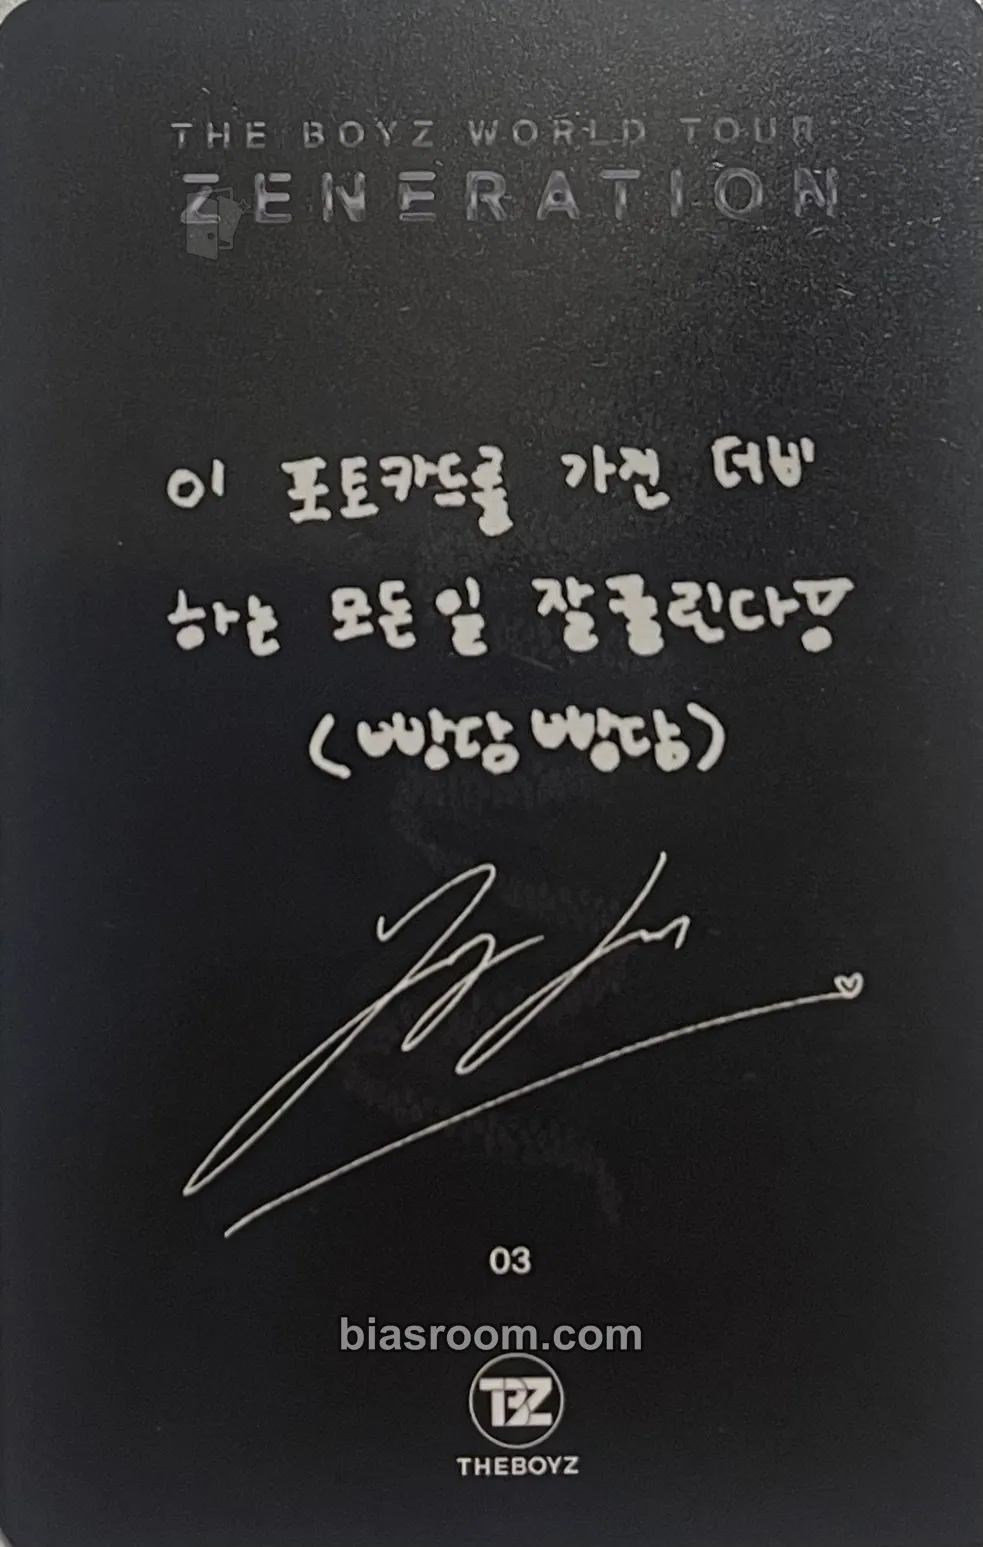 THE BOYZ WORLD TOUR
ZENERATION
이 포토카드를 가진 더비
하는 모든일 잘풀린다
(빵댱빵댱)
03
biasroom.com
TBZ
THEBOYZ